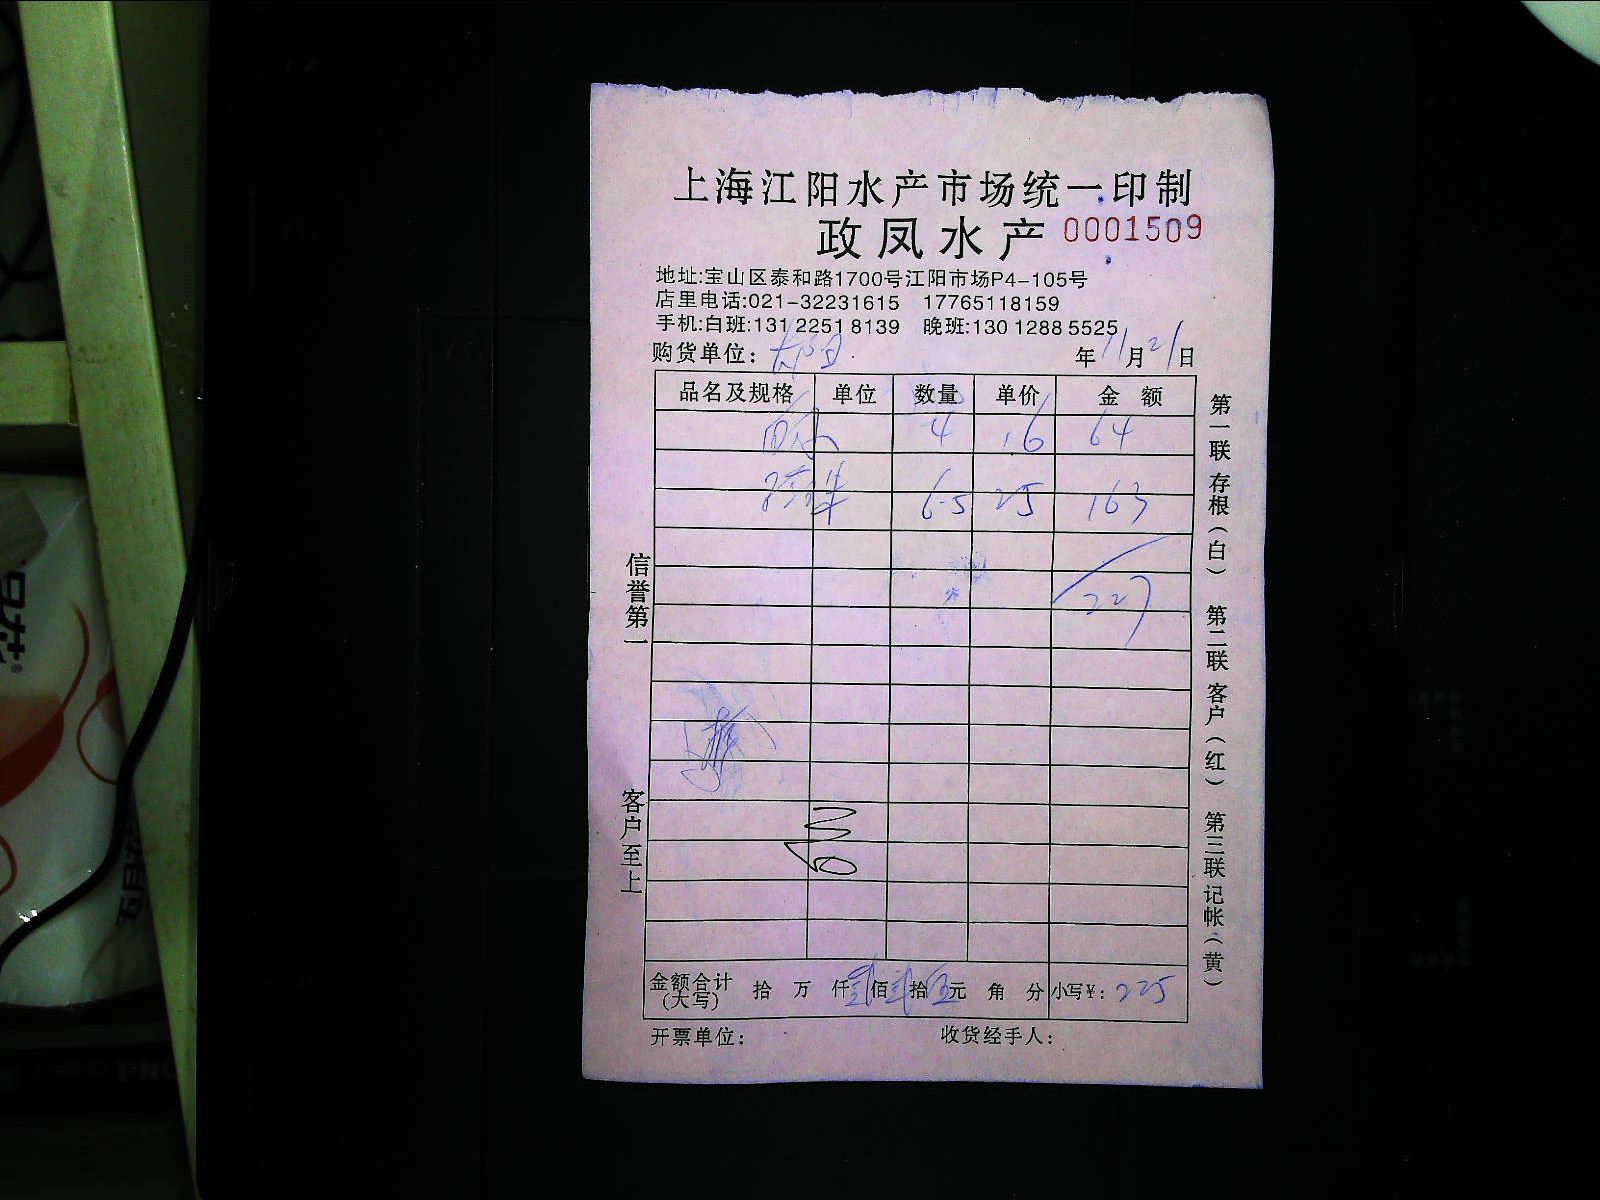 上海江阳水产市场统一印制
政凤水产 0001509
地址:宝山区泰和路1700号江阳市场P4-105号
店里电话:021-32231615 17765118159
手机:白班:131 2251 8139 晚班:130 1288 5525
购货单位: 年 11 月 21 日
品名及规格 单位 数量 单价 金 额
4 16 64
6.5 25 163
227
金额合计(大写) 拾 万 仟 贰 佰 贰 拾 伍 元 角 分 小写¥: 225
开票单位: 收货经手人:
信誉第一
客户至上
第一联 存根(白) 第二联 客户(红) 第三联 记帐(黄)